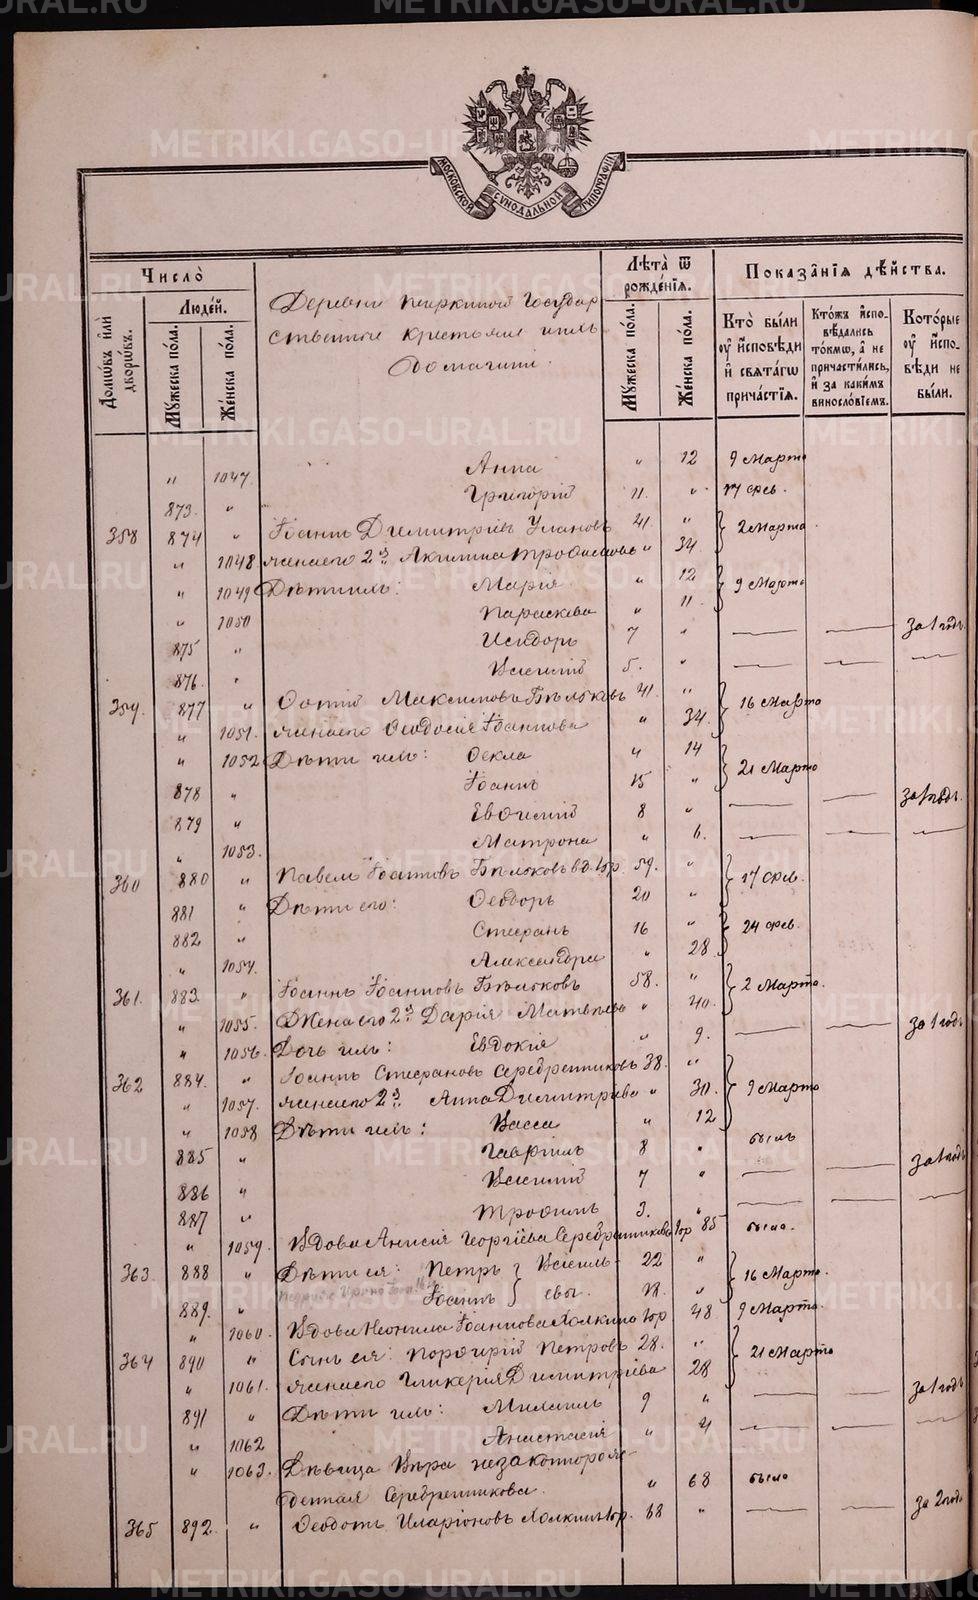 METRIKI.GASO-URAL.RU
МОСКОВСКОЙ СѴНОДАЛЬНОЙ ТИПОГРАФІИ
Число̀
Домѡ́въ и҆лѝ дворѡ́въ.
Люде́й.
Мꙋ́жеска по́ла.
Же́нска по́ла.
Деревни Государ
ственные крестьяне и ихъ
домашніе.
Лѣ́та ѿ рожде́нїѧ.
Мꙋ́жеска по́ла.
Же́нска по́ла.
Показа̑нїѧ дѣ́йства.
Кто̀ бы́ли оу҆ и҆сповѣ́ди и҆ свѧта́гѡ прича́стїѧ.
Кто́жъ и҆спо-вѣ́дались то́кмѡ, а҆ не причасти́лись, и҆ за каки́мъ винослові́емъ.
Кото́рые оу҆ и҆спо-вѣ́ди не бы́ли.
" 1047. Анна " 12 9 Марта
873. " Григорій 11. " 17 Фев.
358 874 " Іоаннъ Димитріевъ Улановъ 41 " 2 Марта
" 1048 жена его 2я Акилина Трофимова " 34
" 1049 Дѣти ихъ: Марія " 12 9 Марта
" 1050 Параскева " 11.
875 " Исидоръ 7 " за 1 годъ
876. " Василій 5. "
359. 877 " Фотій Максимовъ Бѣльковъ 41. " 16 Марта
" 1051. жена его Ѳеодосія Іоаннова " 34.
" 1052 Дѣти ихъ: Ѳекла " 14 21 Марта
878 " Іоаннъ 15 "
879 " Евѳимій 8 " за 1 годъ.
" 1053. Матрона " 6.
360 880 " Павелъ Іоанновъ Бѣльковъ вдовъ 59. " 17 Фев.
881 " Дѣти его: Ѳеодоръ 20 "
882 " Стефанъ 16 " 24 Фев.
" 1054. Александра " 28
361. 883. " Іоаннъ Іоанновъ Бѣльковъ 58. " 2 Марта.
" 1055. Жена его 2я Дарія Матвѣева " 40.
" 1056. Дочь ихъ: Евдокія " 9. за 1 годъ
362 884. " Іоаннъ Стефановъ Серебренниковъ 38. " 9 Марта
" 1057. жена его 2я Анна Димитріева " 30.
" 1058 Дѣти ихъ: Васса " 12
885 " Гавріилъ 8 " былъ
886 " Василій 7 " за 1 годъ
887 " Трофимъ 3. "
" 1059. Вдова Анисія Георгіева Серебренникова 85 была.
363. 888 " Дѣти ея: Петръ Василь- 22 " 16 Марта.
889. " Іоаннъ евы. "
" 1060. Вдова Неонила Іоаннова Холкина 48 9 Марта.
364 890 " Сынъ ея: Порфирій Петровъ 28. " 21 Марта
" 1061. жена его Гликерія Димитріева 28
891 " Дѣти ихъ: Михаилъ 9 " за 1 годъ
" 1062 Анастасія " 4
" 1063. Дѣвица Вѣра незаконнорож-
денная Серебренникова. " 68 была
365 892. " Ѳеодотъ Иларіоновъ Холкинъ 68 " за 2 года